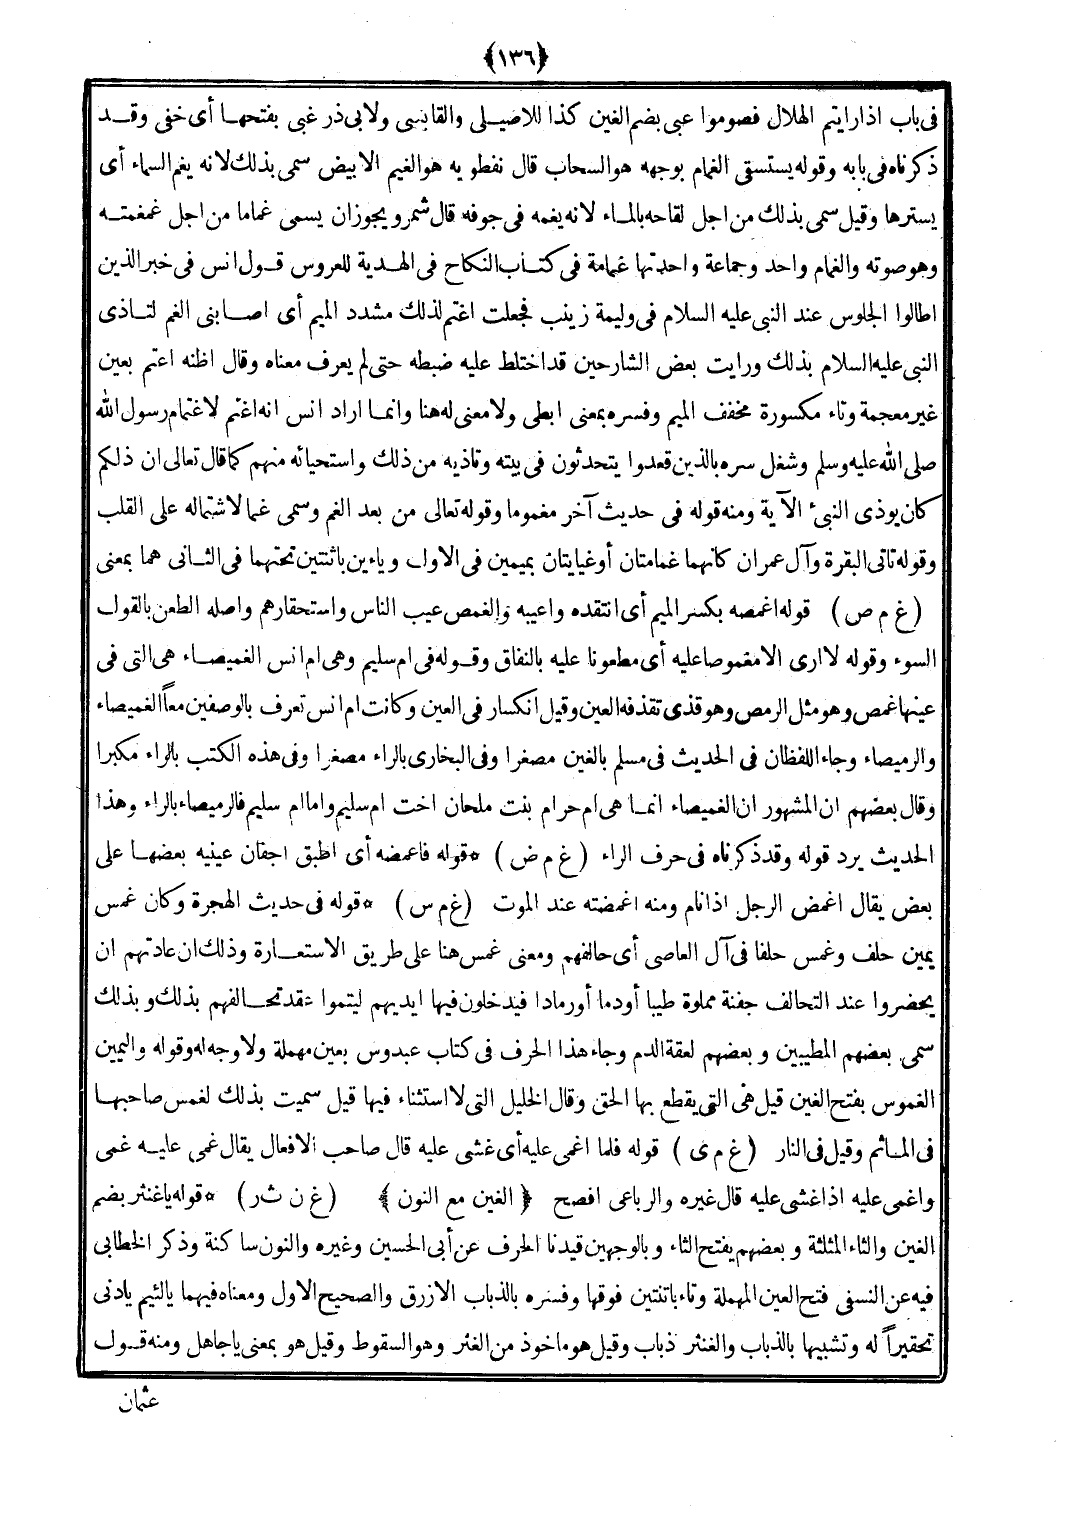 ﴿١٣٦﴾
فى باب اذا رايتم الهلال فصوموا عبى بضم الغين كذا للاصيلى والقابسى ولابى ذر غبى بفتحها أى خفى وقد
ذكرناه فى بابه وقوله يستسقى الغمام بوجهه هو السحاب قال نفطويه هو الغيم الابيض سمى بذلك لانه يغم السماء أى
يسترها وقيل سمى بذلك من اجل لقاحه بالماء لانه يغمه فى جوفه قال شمر ويجوز ان يسمى غماما من اجل غمغمته
وهو صوته والغمام واحد وجماعة واحدتها غمامة فى كتاب النكاح فى الهدية للعروس قول انس فى خبر الذين
اطالوا الجلوس عند النبى عليه السلام فى وليمة زينب فجعلت اغتم لذلك مشدد الميم أى اصابنى الغم لتاذى
النبى عليه السلام بذلك ورايت بعض الشارحين قد اختلط عليه ضبطه حتى لم يعرف معناه وقال اظنه اعتم بعين
غير معجمة وتاء مكسورة مخفف الميم وفسره بمعنى ابطى ولا معنى له هنا وانما اراد انس انه اغتم لاغتمام رسول الله
صلى الله عليه وسلم وشغل سره بالذين قعدوا يتحدثون فى بيته وتاذيه من ذلك واستحيائه منهم كما قال تعالى ان ذلكم
كان يوذى النبىء الآية ومنه قوله فى حديث آخر مغموما وقوله تعالى من بعد الغم وسمى غما لاشتماله على القلب
وقوله تاتى البقرة وآل عمران كانهما غمامتان أو غيايتان بميمين فى الاول وياءين باثنتين تحتهما فى الثانى هما بمعنى
(غ م ص) قوله اغمصه بكسر الميم أى انتقده واعيبه والغمص عيب الناس واستحقارهم واصله الطعن بالقول
السوء وقوله لا ارى الا مغموصا عليه أى مطعونا عليه بالنفاق وقوله فى ام سليم وهى ام انس الغميصاء هى التى فى
عينها غمص وهو مثل الرمص وهو قذى تقذفه العين وقيل انكسار فى العين وكانت ام انس تعرف بالوصفين معاً الغميصاء
والرميصاء وجاء اللفظان فى الحديث فى مسلم بالغين مصغرا وفى البخارى بالراء مصغرا وفى هذه الكتب بالراء مكبرا
وقال بعضهم ان المشهور ان الغميصاء انما هى ام حرام بنت ملحان اخت ام سليم واما ام سليم فالرميصاء بالراء وهذا
الحديث يرد قوله وقد ذكرناه فى حرف الراء (غ م ض) *قوله فاغمضه أى اطبق اجفان عينيه بعضها على
بعض يقال اغمض الرجل اذا نام ومنه اغمضته عند الموت (غ م س) *قوله فى حديث الهجرة وكان غمس
يمين حلف وغمس حلفا فى آل العاصى أى حالفهم ومعنى غمس هنا على طريق الاستعارة وذلك ان عادتهم ان
يحضروا عند التحالف جفنة مملوة طيبا أو دما أو رمادا فيدخلون فيها ايديهم ليتموا عقد تحالفهم بذلك وبذلك
سمى بعضهم المطيبين وبعضهم لعقة الدم وجاء هذا الحرف فى كتاب عبدوس بعين مهملة ولا وجه له وقوله واليمين
الغموس بفتح الغين قيل هى التى يقطع بها الحق وقال الخليل التى لا استثناء فيها قيل سميت بذلك لغمس صاحبها
فى الماثم وقيل فى النار (غ م ى) قوله فلما اغمى عليه أى غشى عليه قال صاحب الافعال يقال غمى عليه غمى
واغمى عليه اذا غشى عليه قال غيره والرباعى افصح ﴿ الغين مع النون ﴾ (غ ن ث ر) *قوله يا غنثر بضم
الغين والثاء المثلثة وبعضهم يفتح الثاء وبالوجهين قيدنا الحرف عن أبى الحسين وغيره والنون ساكنة وذكر الخطابى
فيه عن النسفى فتح العين المهملة وتاء باثنتين فوقها وفسره بالذباب الازرق والصحيح الاول ومعناه فيهما يا لئيم يا دنى
تحقيراً له وتشبيها بالذباب والغنثر ذباب وقيل هو ماخوذ من الغثر وهو السقوط وقيل هو بمعنى يا جاهل ومنه قول
عثمان